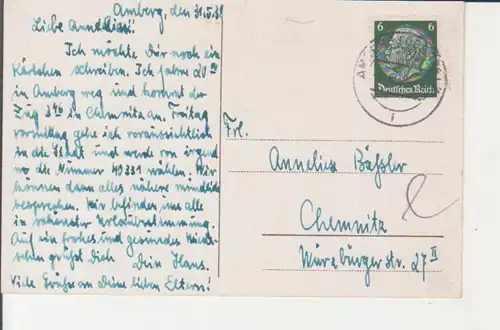 Amberg, den 31.5.39
Liebe Anneliese!
Ich möchte Dir noch ein
Kärtchen schreiben. Ich fahre 20
in Amberg weg und kommt der
Zug 3 in Chemnitz an. Freitag
vormittag gehe ich voraussichtlich
in die Stadt und werde von irgend
wo die Nummer 40331 wählen. Wir
können dann alles nähere mündlich
besprechen. Wir befinden uns alle
in schönster Urlaubsstimmung.
Auf ein frohes und gesundes Wieder-
sehen grüßt Dich Dein Hans.
Viele Grüße an Deine lieben Eltern!
6 6
Deutsches Reich
Frl.
Annelies Bäßler
Chemnitz
Würzburger Str. 27 II